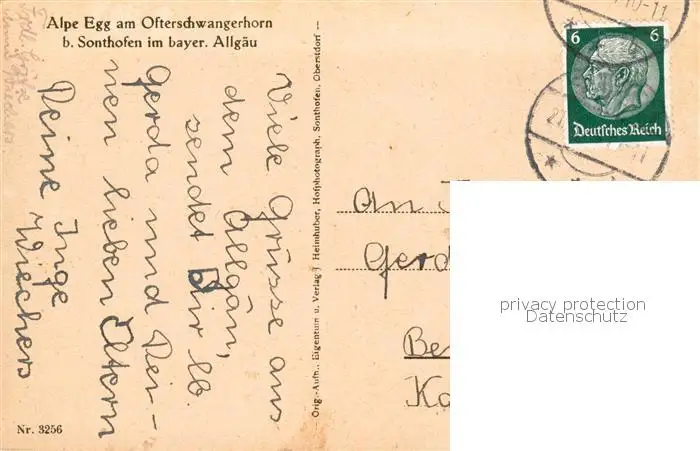 Alpe Egg am Ofterschwangerhorn
b. Sonthofen im bayer. Allgäu
Viele Grüsse aus
dem Allgäu,
sendet Dir lb.
Gerda und Dei-
nen lieben Eltern
Deine Inge
Wiechers
Nr. 3256
Orig.-Aufn., Eigentum u. Verlag J Heimhuber, Hofphotograph, Sonthofen, Oberstdorf
6 6
Deutsches Reich
An
Gerd
Be
Ka
privacy protection
Datenschutz